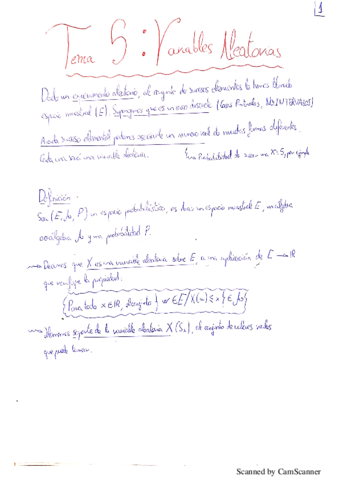 1
Tema 5: Variables Aleatorias
Dado un experimento aleatorio, al conjunto de sucesos elementales lo hemos llamado
espacio muestral (E). Supongamos que es un caso
A cada suceso elemental podemos asociarle un número real de muchas formas diferentes.
Cada una será una variable aleatoria.
Definición
Sea (E, P) un espacio probabilístico, es decir un espacio muestral E, un álgebra
o σ-álgebra y una probabilidad P.
Diremos que X es una variable aleatoria sobre E, a una aplicación de E → ℝ
que verifique la propiedad:
Para todo x ∈ ℝ, el conjunto { w ∈ E / X(w) ≤ x } ∈
Llamaremos soporte de la variable aleatoria X (Sx), al conjunto de valores reales
que puede tomar.
Scanned by CamScanner